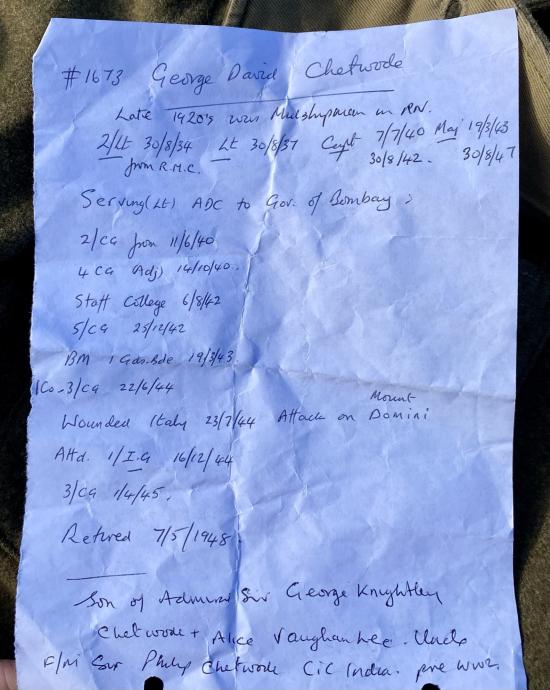 #1673 George David Chetwode
Late 1920's was Midshipman in RN.
2/Lt 30/8/34 Lt 30/8/37 Capt 7/7/40 Maj 19/3/43
from R.M.C. 30/8/42. 30/8/47
Serving (Lt) ADC to Gov. of Bombay
2/CG from 11/6/40
4 CG (Adj) 14/10/40.
Staff College 6/8/42
5/CG 25/12/42
BM 1 Gds. Bde 19/3/43.
1Co-3/CG 22/6/44
Mount
Wounded Italy 23/7/44 Attack on Domini
Attd. 1/I.G 16/12/44
3/CG 1/4/45.
Retired 7/5/1948.
Son of Admiral Sir George Knightley
Chetwode + Alice Vaughan Lee. Uncle
F/M Sir Philip Chetwode CiC India. pre WW2.